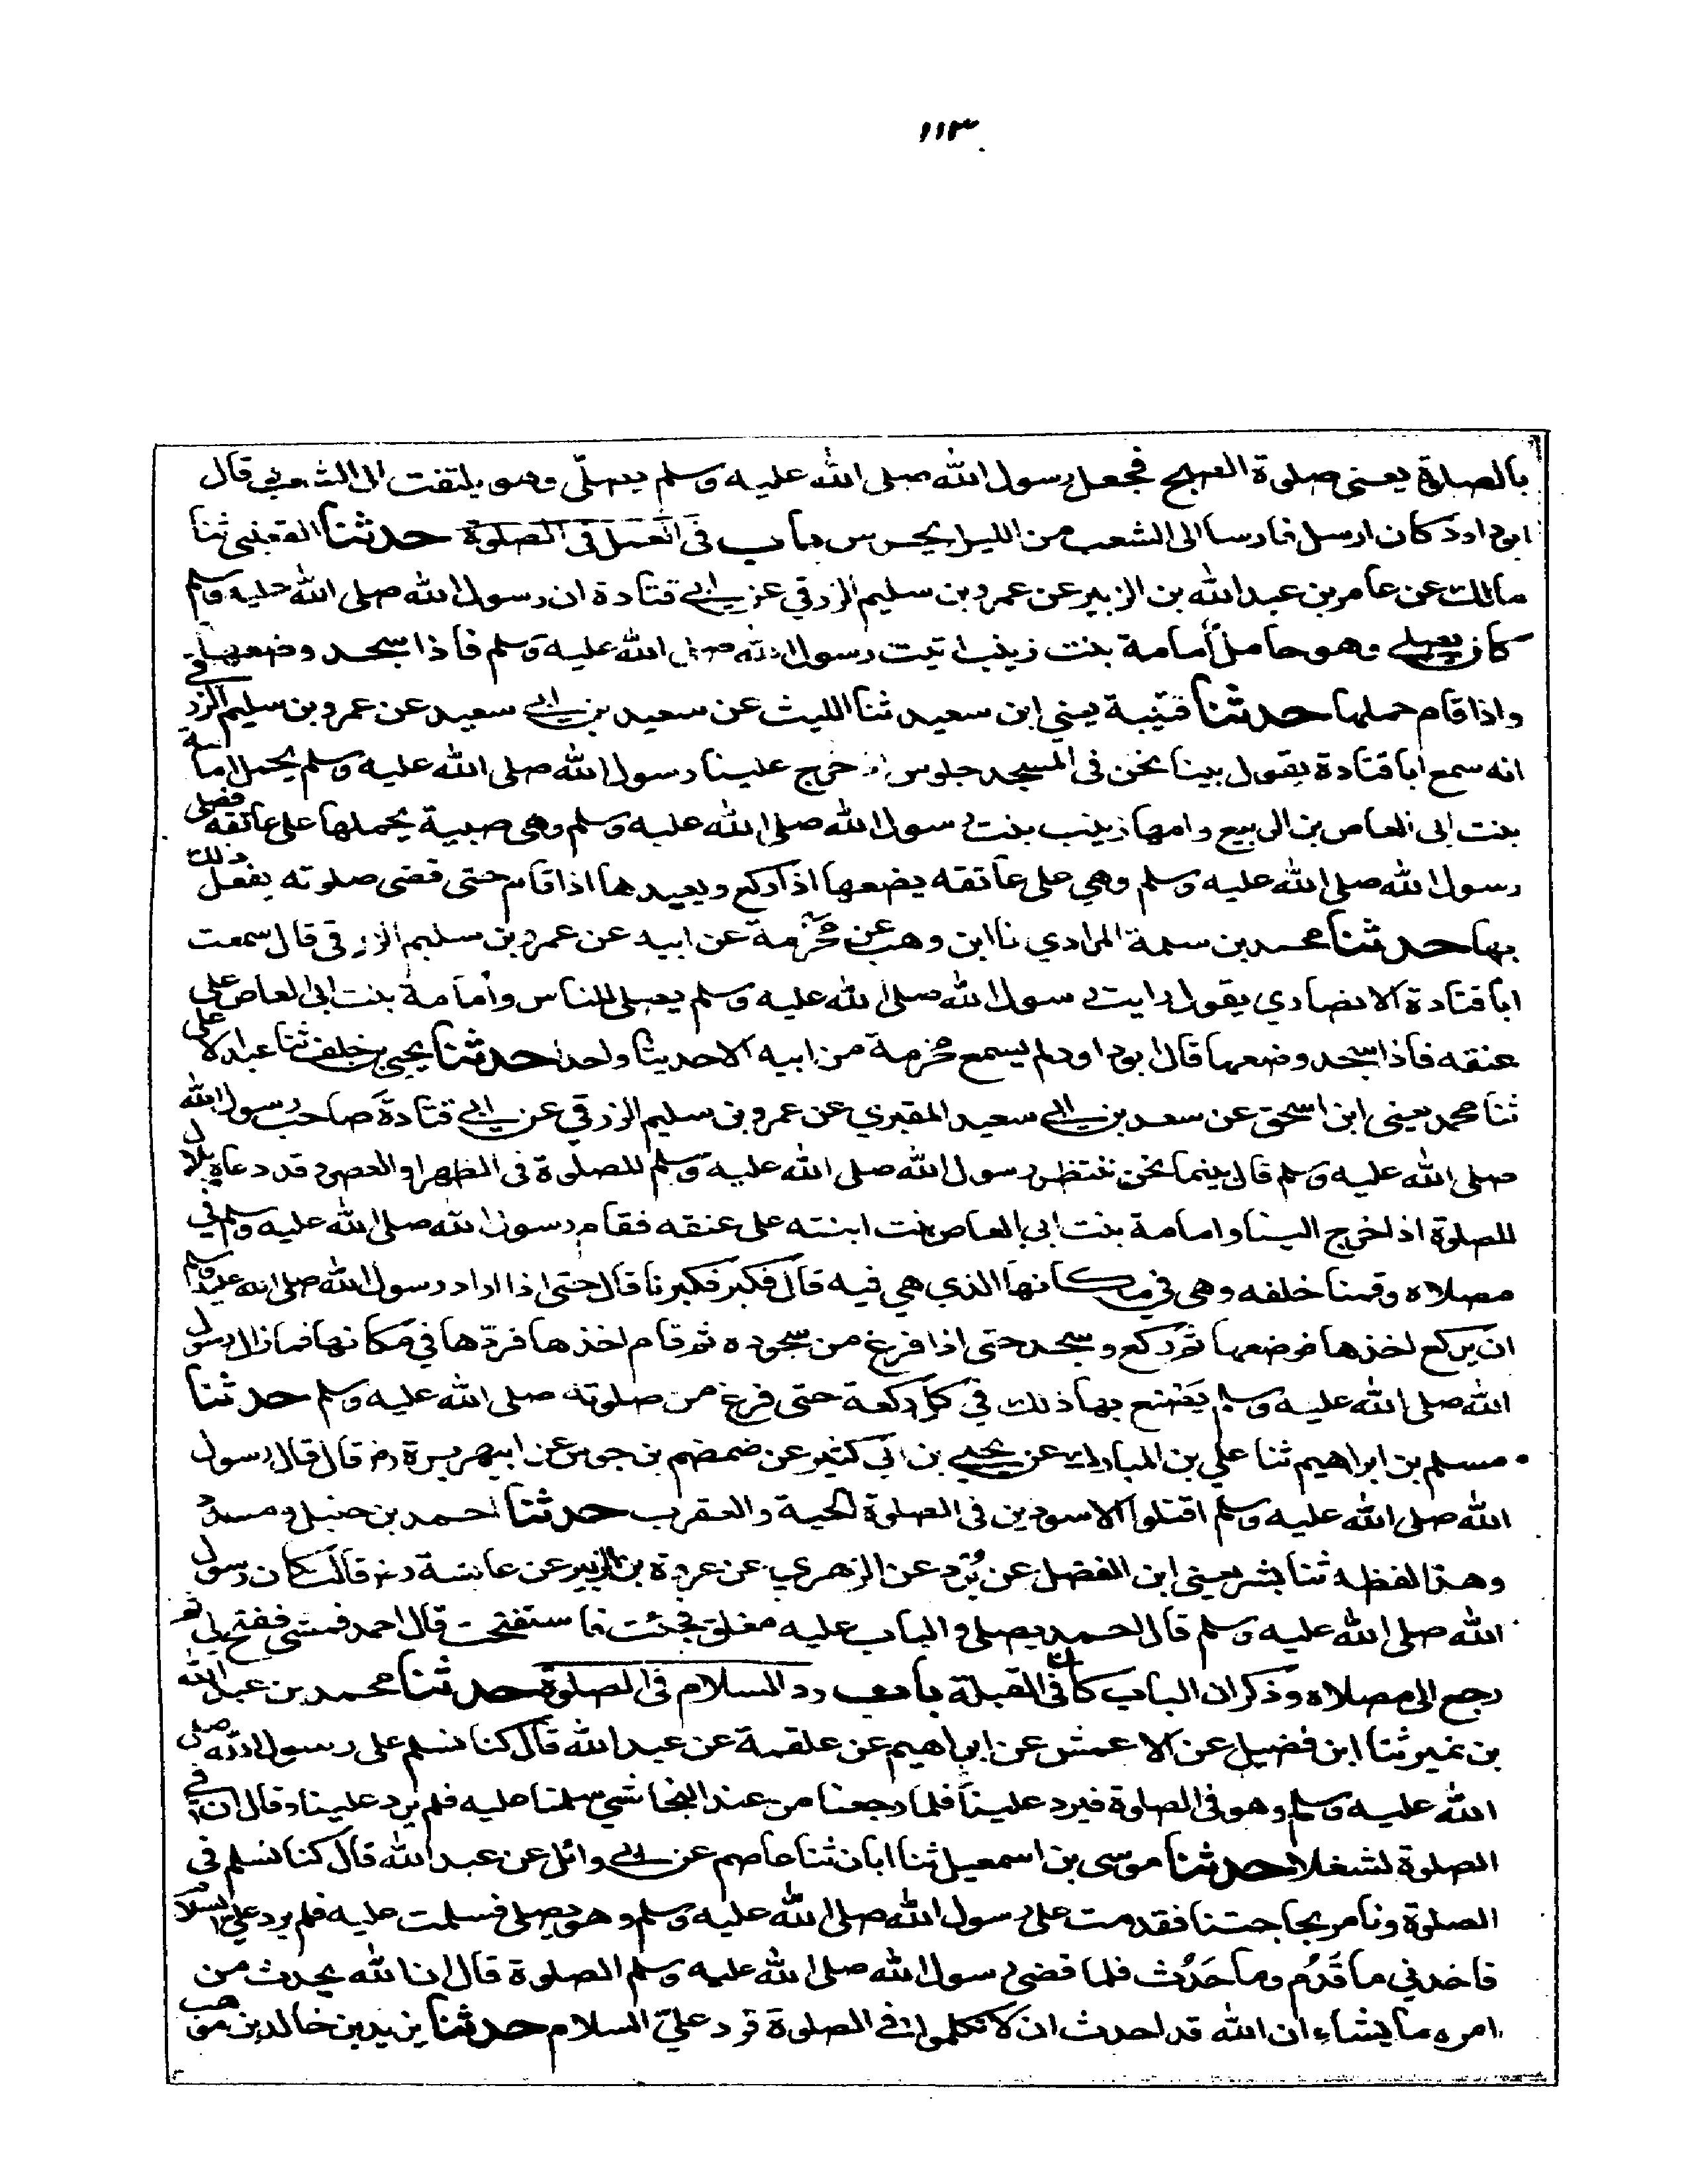 ١١٣
بالصلاة يعنى صلوة الصبح فجعل رسول الله صلى الله عليه وسلم يصلّى وهو يلتفت الى الشعب قال
ابو داود كان ارسل فارسا الى الشعب من الليل يحرس باب فى العمل فى الصلوة حدثنا القعنبى ثنا
مالك عن عامر بن عبد الله بن الزبير عن عمرو بن سليم الزرقي عن ابي قتادة ان رسول الله صلى الله عليه وسلم
كان يصلي وهو حامل أمامة بنت زينب ابنت رسول الله صلى الله عليه وسلم فاذا سجد وضعها
واذا قام حملها حدثنا قتيبة يعني ابن سعيد ثنا الليث عن سعيد بن ابي سعيد عن عمرو بن سليم الزرقي
انه سمع ابا قتادة يقول بينا نحن فى المسجد جلوس اذ خرج علينا رسول الله صلى الله عليه وسلم يحمل امامة
بنت ابى العاص بن الربيع وامها زينب بنت رسول الله صلى الله عليه وسلم وهى صبية يحملها على عاتقه فصلى
رسول الله صلى الله عليه وسلم وهي على عاتقه يضعها اذا ركع ويعيدها اذا قام حتى قضى صلوته يفعل ذلك
بها حدثنا محمد بن سلمة المرادي نا ابن وهب عن مخرمة عن ابيه عن عمرو بن سليم الزرقى قال سمعت
ابا قتادة الانصاري يقول رايت رسول الله صلى الله عليه وسلم يصلى للناس وأمامة بنت ابى العاص على
عنقه فاذا سجد وضعها قال ابو داود لم يسمع مخرمة من ابيه الا حديثا واحدا حدثنا يحيى بن خلف ثنا عبد الاعلى
ثنا محمد يعنى ابن اسحق عن سعيد بن ابي سعيد المقبري عن عمرو بن سليم الزرقي عن ابي قتادة صاحب رسول الله
صلى الله عليه وسلم قال بينما نحن ننتظر رسول الله صلى الله عليه وسلم للصلوة فى الظهر او العصر وقد دعاه بلال
للصلوة اذ اخرج الينا وامامة بنت ابى العاص بنت ابنته على عنقه فقام رسول الله صلى الله عليه وسلم في
مصلاه وقمنا خلفه وهى في مكانها الذي هي فيه قال فكبر فكبرنا قال حتى اذا اراد رسول الله صلى الله عليه وسلم
ان يركع اخذها فوضعها ثم ركع وسجد حتى اذا فرغ من سجوده ثم قام اخذها فردّها في مكانها فما زال رسول
الله صلى الله عليه وسلم يصنع بها ذلك في كل ركعة حتى فرغ من صلوته صلى الله عليه وسلم حدثنا
مسلم بن ابراهيم ثنا علي بن المبارك عن يحيى بن ابي كثير عن ضمضم بن جوس عن ابيهريرة رض قال قال رسول
الله صلى الله عليه وسلم اقتلوا الاسودين فى الصلوة الحية والعقرب حدثنا احمد بن حنبل ومسدد
وهذا لفظه ثنا بشر يعنى ابن الفضل عن بُرد عن الزهري عن عروة بن الزبير عن عائشة رض قالت كان رسول
الله صلى الله عليه وسلم قال احمد يصلى والباب عليه مغلق فجئت فاستفتحت قال احمد فمشى ففتح لي ثم
رجع الى مصلاه وذكر ان الباب كان فى القبلة باب رد السلام فى الصلوة حدثنا محمد بن عبد الله
بن نمير ثنا ابن فضيل عن الاعمش عن ابراهيم عن علقمة عن عبد الله قال كنا نسلم على رسول الله صلى
الله عليه وسلم وهو فى الصلوة فيرد علينا فلما رجعنا من عند النجاشي سلمنا عليه فلم يرد علينا وقال ان في
الصلوة لشغلا حدثنا موسى بن اسمعيل ثنا ابان ثنا عاصم عن ابي وائل عن عبد الله قال كنا نسلم فى
الصلوة ونامر بحاجتنا فقدمت على رسول الله صلى الله عليه وسلم وهو يصلى فسلمت عليه فلم يرد علي السلام
فاخذني ما قَدُم وما حَدُث فلما قضى رسول الله صلى الله عليه وسلم الصلوة قال ان الله يحدث من
امره ما يشاء ان الله قد احدث ان لا تكلموا فى الصلوة فرد عليّ السلام حدثنا يزيد بن خالد بن موهب